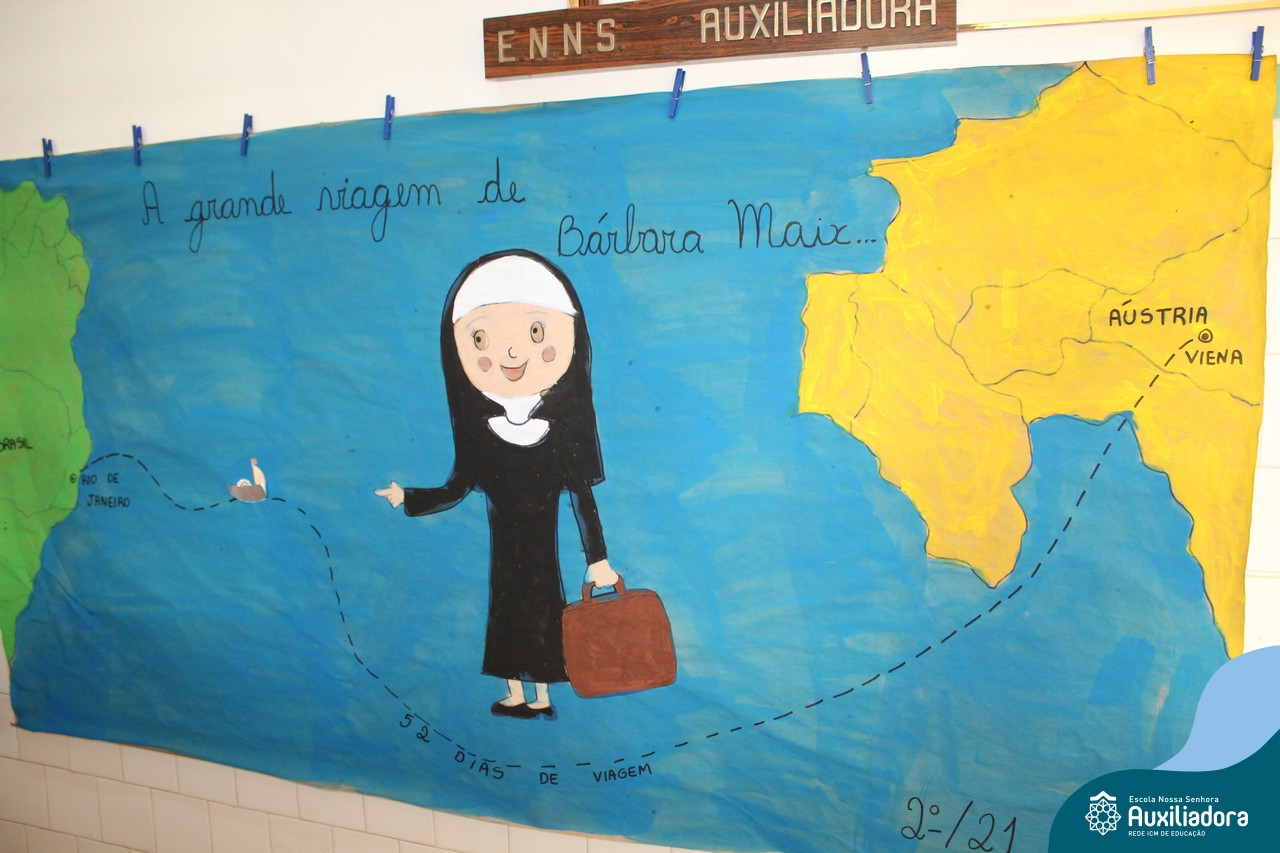 E.N.N S AUXILIADORA
A grande viagem de
Bárbara Maix...
AÚSTRIA
VIENA
BRASIL
RIO DE
JANEIRO
52 DIAS DE VIAGEM
2º/21
Escola Nossa Senhora
Auxiliadora
REDE ICM DE EDUCAÇÃO